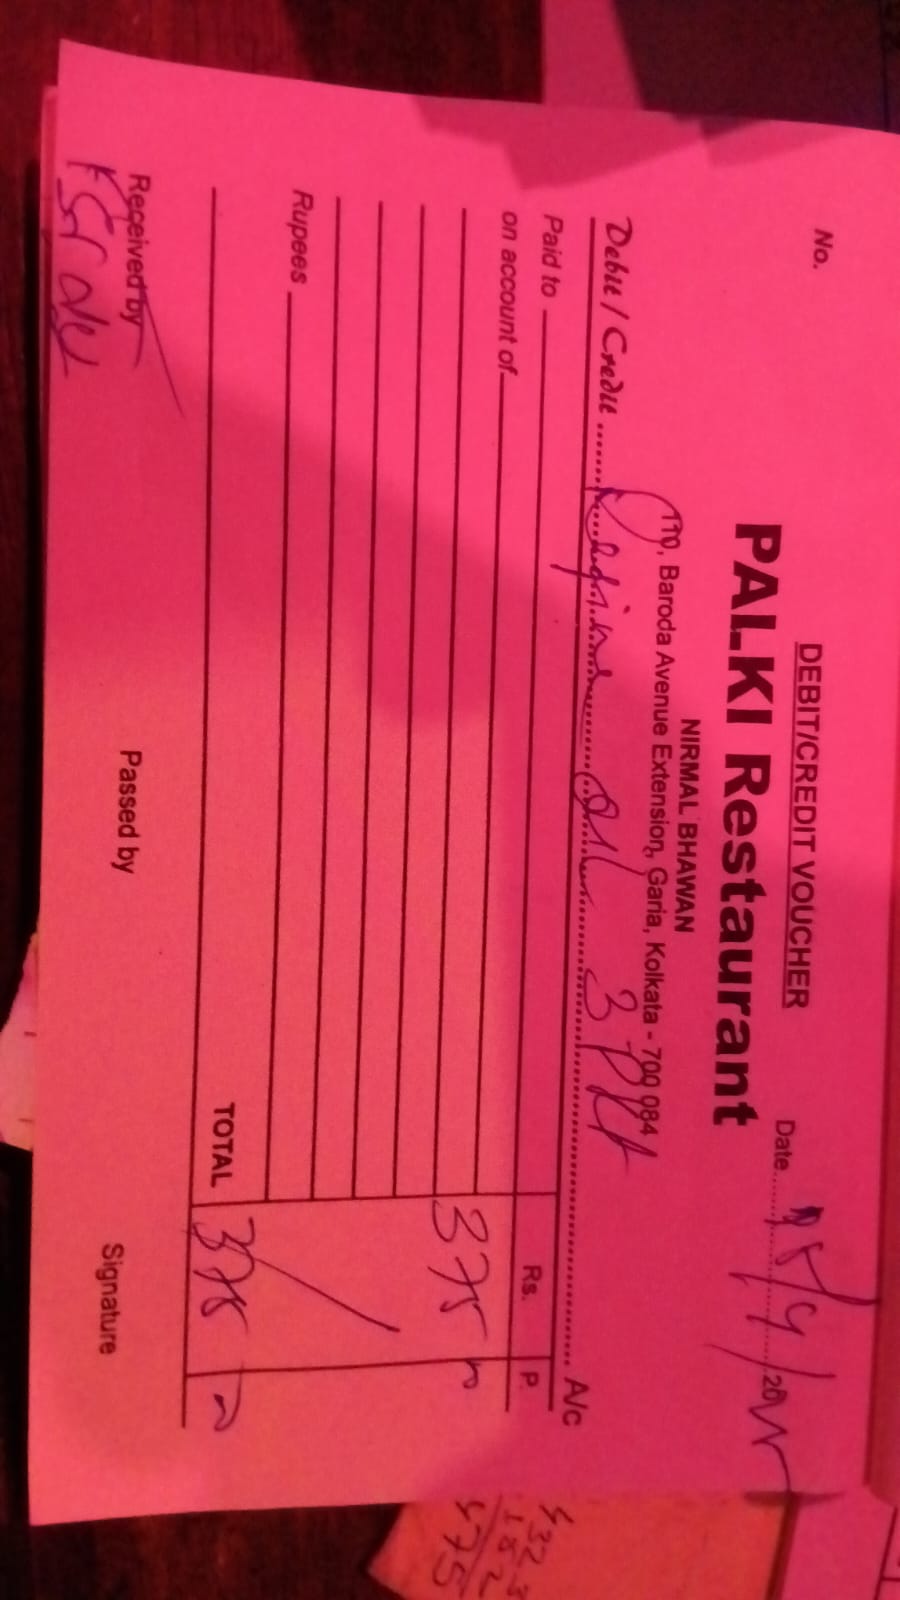 DEBIT/CREDIT VOUCHER
No.
Date 8/9/20
PALKI Restaurant
NIRMAL BHAWAN
110, Baroda Avenue Extension, Garia, Kolkata - 700 084
Debit / Credit 3 A/c
Paid to
Rs. P.
on account of
375
Rupees
TOTAL 375
Received by
Passed by
Signature